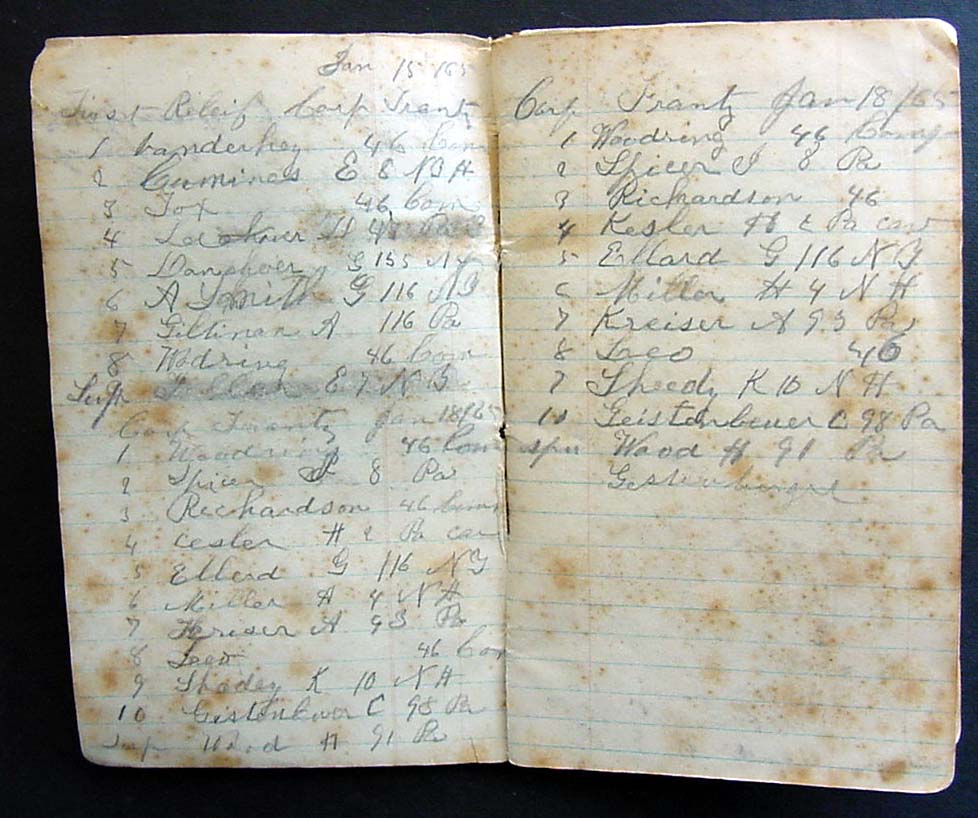 Jan 15 /65
First Releif Corp Frantz
1 Vanderhey 46 Com
2 Cumines E 8 N H
3 Fox 46 Com
4 H
5 G 155 N Y
6 A Smith G 116 N Y
7 Gillinan A 116 Pa
8 Wodring 46 Com
Sup E 7 N
Corp Frantz Jan 18/65
1 Woodring 46 Com
2 Spicer I 8 Pa
3 Richardson 46 Com
4 Cesler H 2 Pa cav
5 Ellerd G 116 N Y
6 Miller H 4 N H
7 Kriser A 93 Pa
8 Leeo 46 Com
9 Shadey K 10 N H
10 Geistenbever C 98 Pa
Sup Wood H 91 Pa
Corp Frantz Jan 18/65
1 Woodring 46 Comp
2 Spicer I 8 Pa
3 Richardson 46
4 Kesler H 2 Pa cav
5 Ellard G 116 N Y
6 Miller H 4 N H
7 Kreiser A 93 Pa
8 Leeo 46
7 Sheedy K 10 N H
10 Geistenbeuer C 98 Pa
Spu Wood H 91 Pa